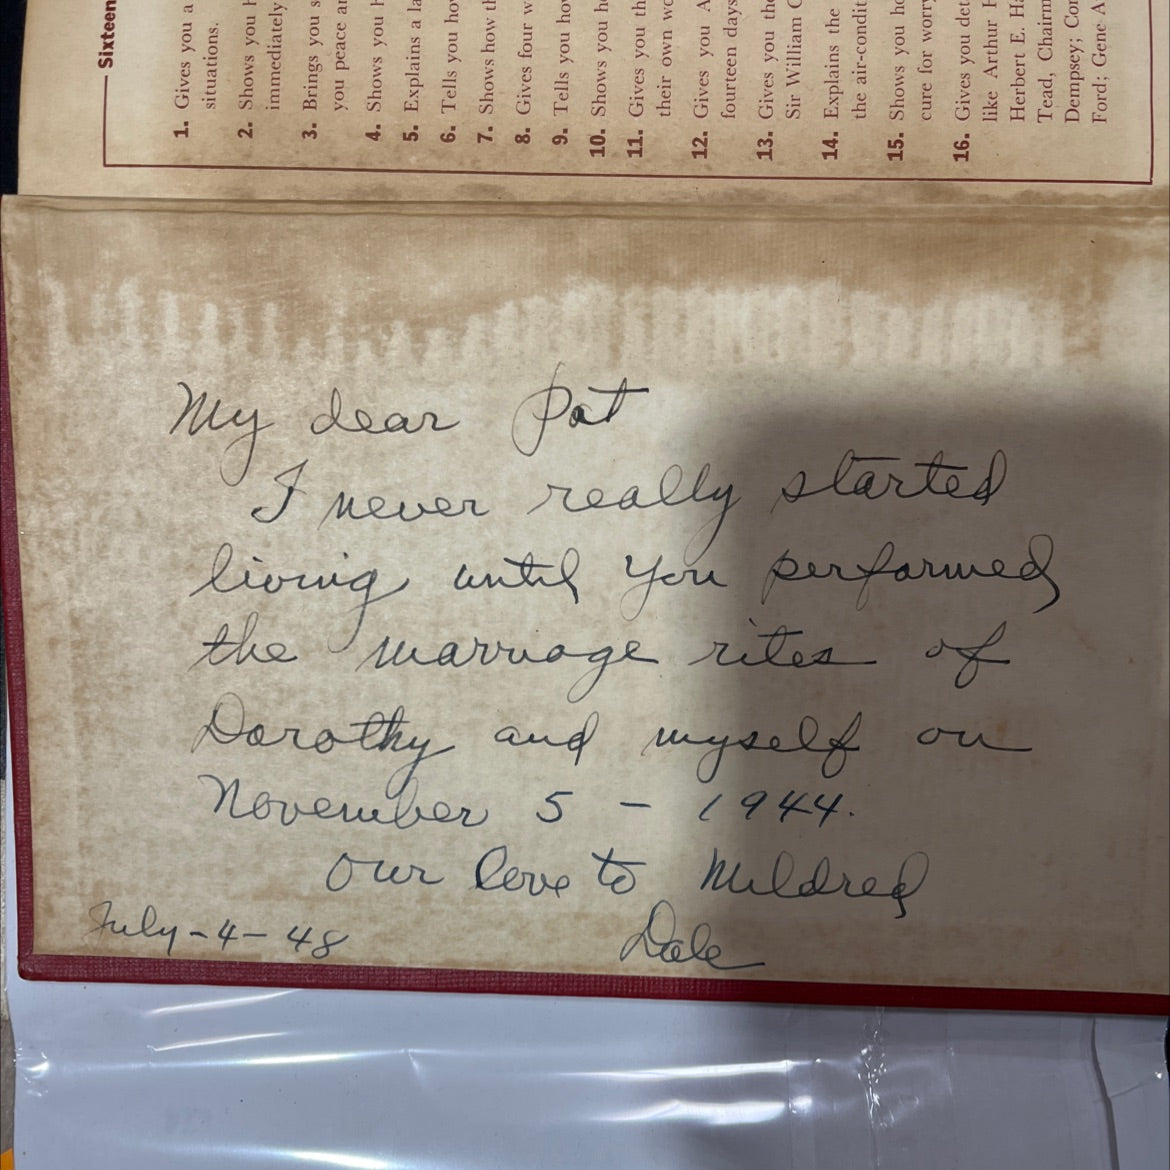 Sixteen
1. Gives you a
situations.
2. Shows you
immediately
3. Brings you
you peace
4. Shows you
5. Explains a
6. Tells you
7. Shows how
8. Gives four
9. Tells you
10. Shows you
11. Gives you
their own
12. Gives you A
fourteen days
13. Gives you the
Sir William
14. Explains the
the air-condit
15. Shows you
cure for worry
16. Gives you det
like Arthur
Herbert E.
Tead, Chairm
Dempsey;
Ford; Gene
My dear Pat
I never really started
living until you performed
the marriage rites of
Dorothy and myself on
November 5 - 1944.
Our love to Mildred
July-4-48 Dale